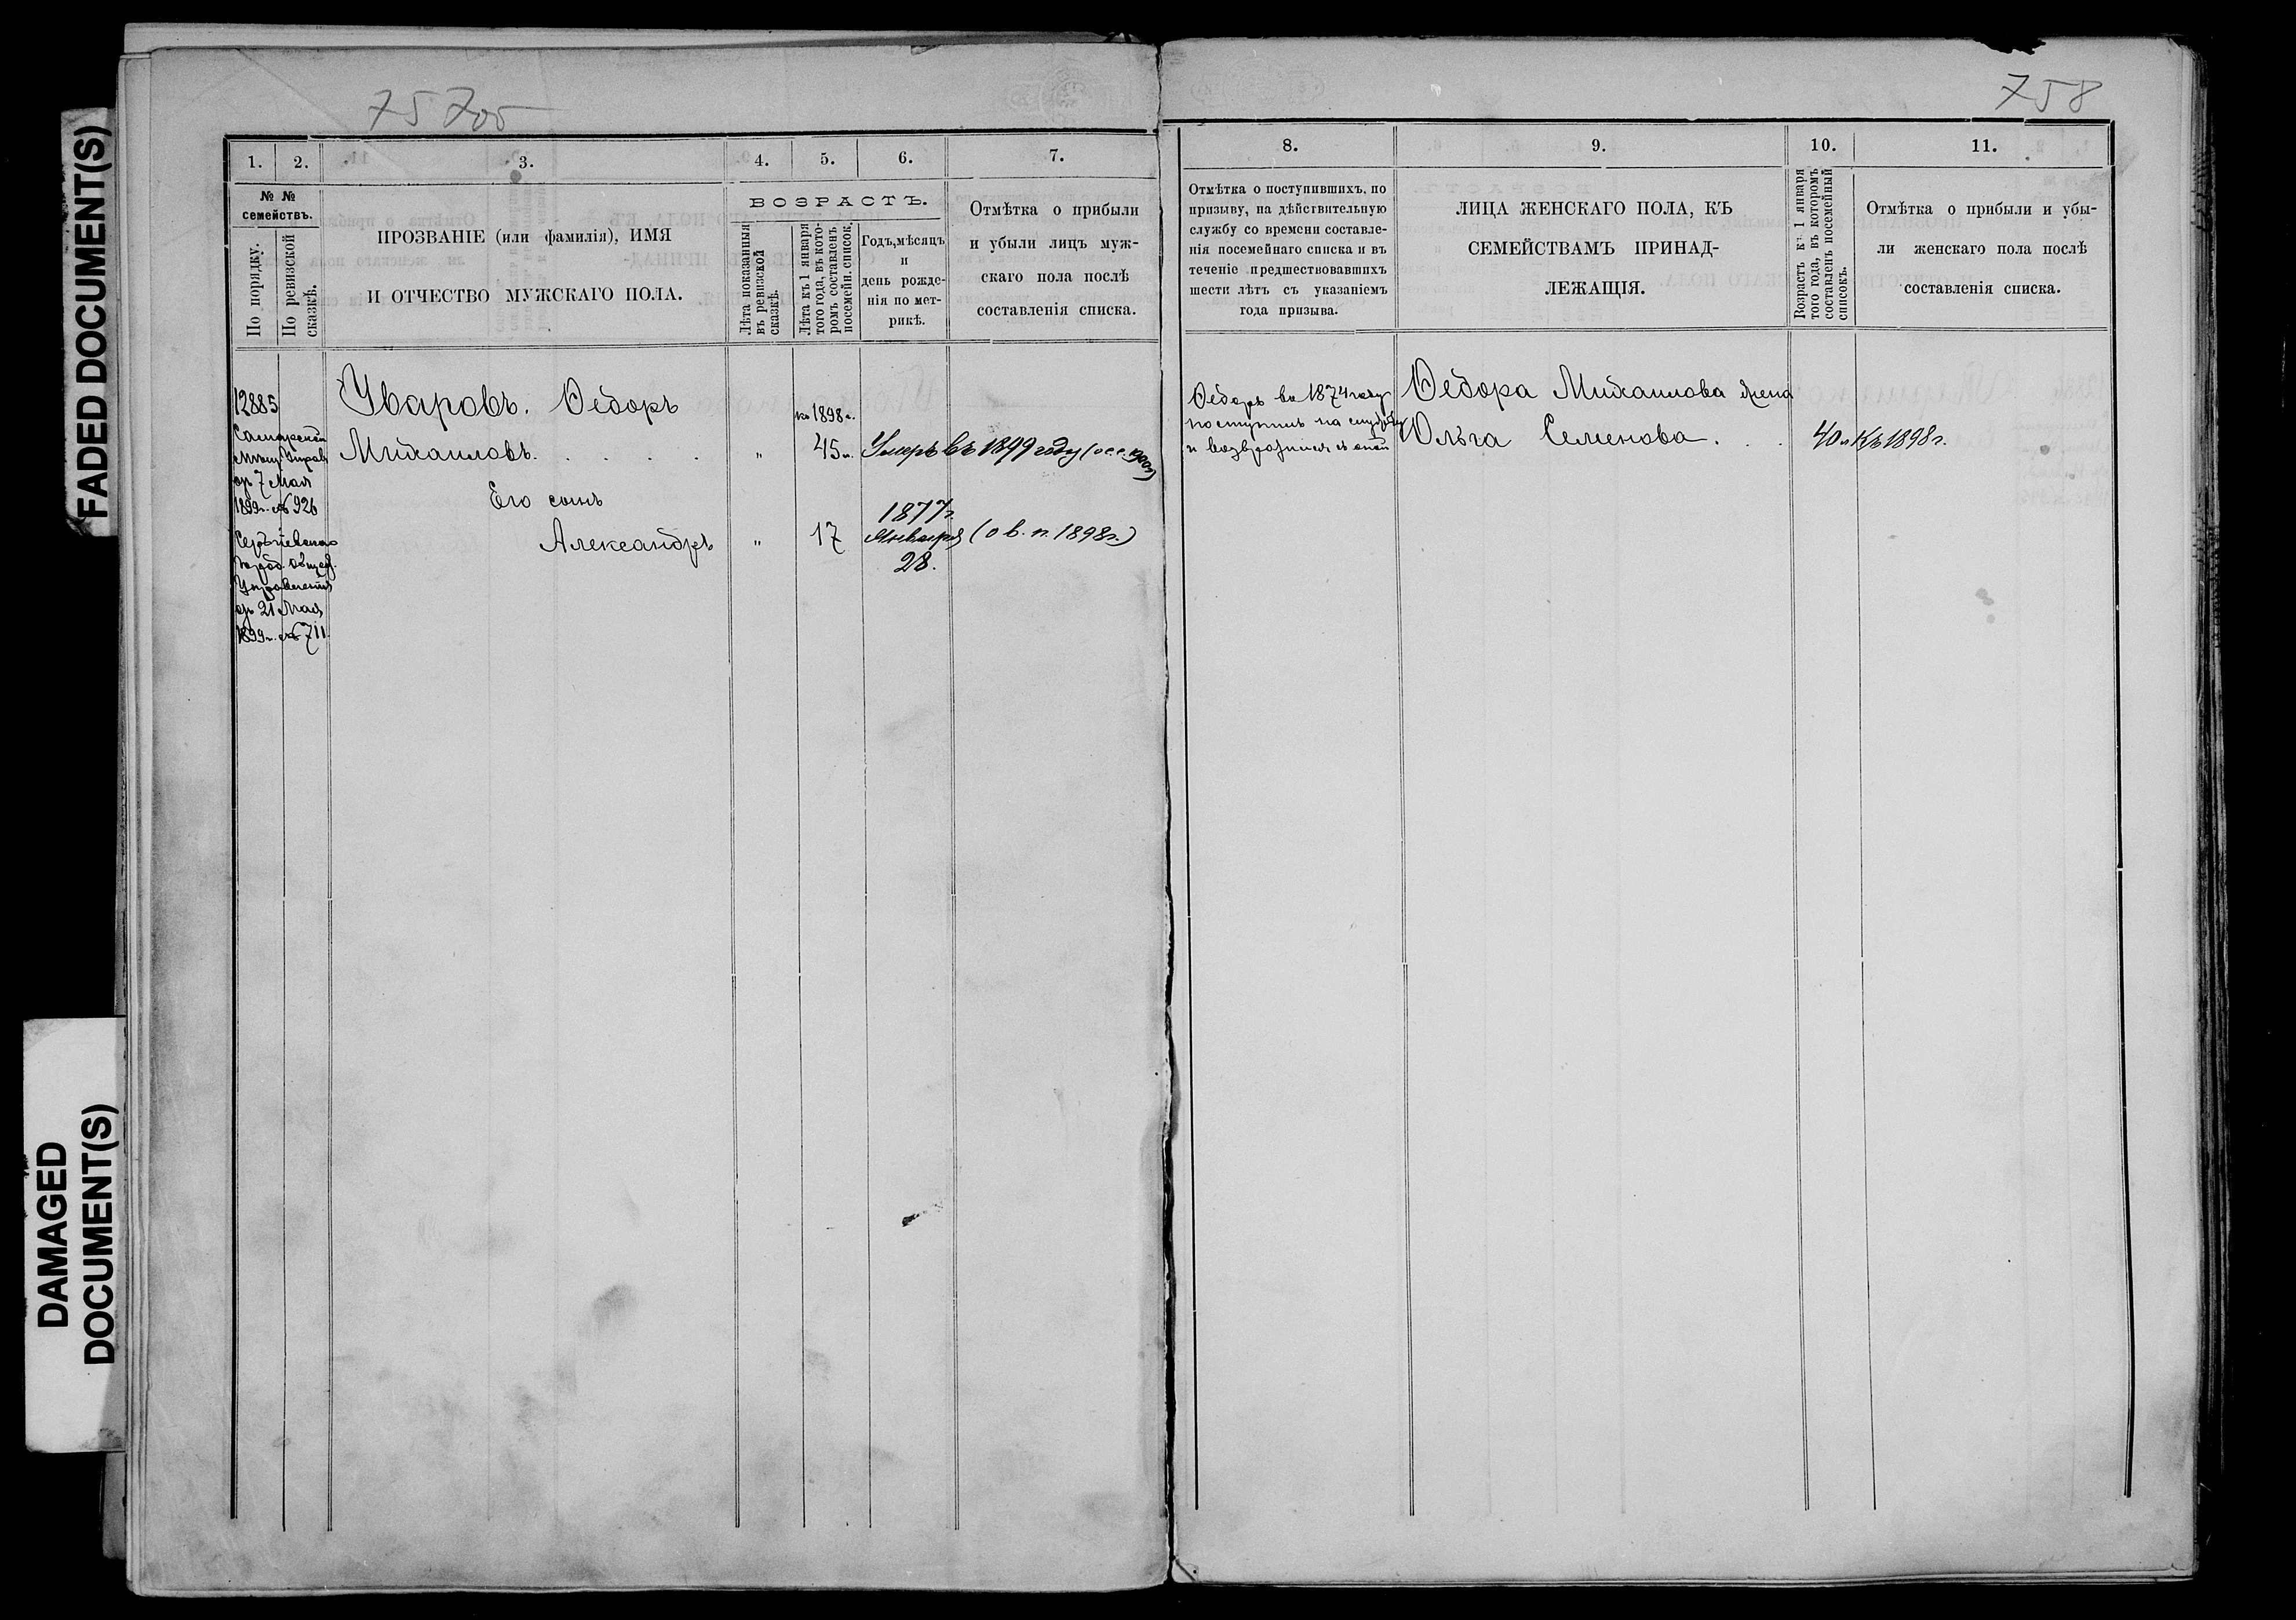 FADED DOCUMENT(S)
DAMAGED
DOCUMENT(S)
757об
1. 2. 3. 4. 5. 6. 7.
№ №
семействъ.
По порядку.
По ревизской
сказкѣ.
ПРОЗВАНІЕ (или фамилія), ИМЯ
И ОТЧЕСТВО МУЖСКАГО ПОЛА.
ВОЗРАСТЪ.
Лѣта показанныя
въ ревизской
сказкѣ.
Лѣта къ 1 января
того года, въ кото-
ромъ составленъ
посемейн. список.
Годъ, мѣсяцъ
и
день рожде-
нія по мет-
рикѣ.
Отмѣтка о прибыли
и убыли лицъ муж-
скаго пола послѣ
составленія списка.
12885
Самарской
Мѣщ. Управ.
отъ 7 Мая
1899 г. № 926
Сергіевскаго
Город. Общест.
Управленія
отъ 21 Мая
1899 г. № 711.
Уваровъ. Ѳедоръ
Михаиловъ. . . . . " 45 л. Умеръ въ 1899 году
къ 1898 г.
Его сынъ
Александръ " 17
1877 г.
Января (о в. п. 1898 г.)
28.
758
8. 9. 10. 11.
Отмѣтка о поступившихъ, по
призыву, на дѣйствительную
службу со времени составле-
нія посемейнаго списка и въ
теченіе предшествовавшихъ
шести лѣтъ съ указаніемъ
года призыва.
ЛИЦА ЖЕНСКАГО ПОЛА, КЪ
СЕМЕЙСТВАМЪ ПРИНАД-
ЛЕЖАЩІЯ.
Возрастъ къ 1 января
того года, въ которомъ
составленъ посемейный
списокъ.
Отмѣтка о прибыли и убы-
ли женскаго пола послѣ
составленія списка.
Ѳедоръ въ 1874 году
поступилъ на службу
и возвратился
Ѳедора Михаилова жена
Ольга Семенова. . . 40 л. Къ 1898 г.